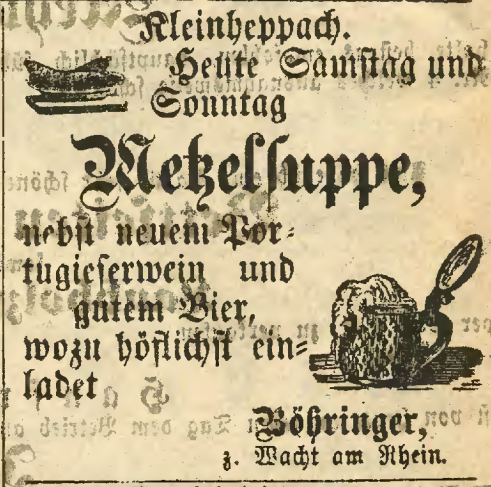 Kleinheppach.
Heute Samstag und
Sonntag
Metzelsuppe,
nebst neuem Por-
tugieserwein und
gutem Bier,
wozu höflichst ein-
ladet
Böhringer,
z. Wacht am Rhein.